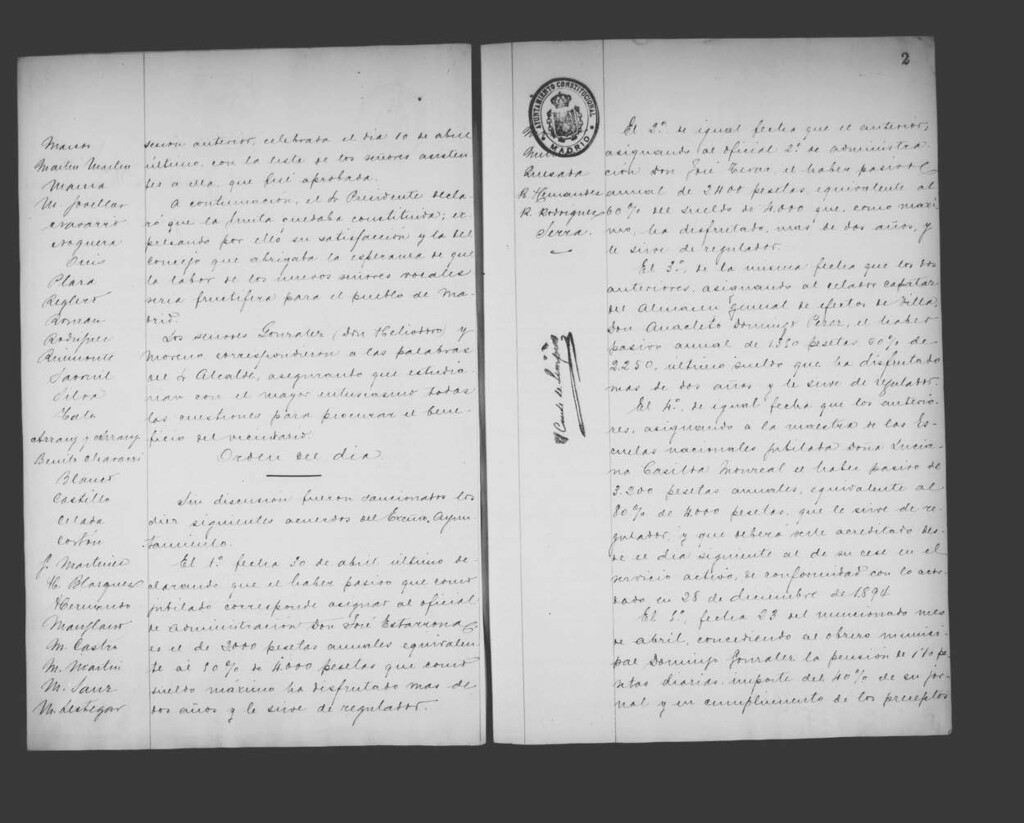 Martin Martin
M. Jovellar
Navarro
Noguera
Plaza
Reglero
Roman
Rodriguez
Silva
Arranz y Arranz
Benito Chavarri
Blanco
Castillo
Celada
Cortón
J. Martinez
H. Blazquez
Hernando
M. Castro
M. Martin
M. Sanz
sesion anterior, celebrada el dia 10 de abril
último, con la lista de los señores asisten-
tes a ella, que fué aprobada.
A continuacion, el Sr Presidente decla-
ró que la Junta quedaba constituida; ex-
presando por ello su satisfacción y la del
Concejo que abrigaba la esperanza de que
la labor de los nuevos señores vocales
seria fructifera para el pueblo de Ma-
drid.
Los señores Gonzalez (Don Heliodoro) y
Moreno correspondieron a las palabras
del Sr Alcalde, asegurando que estudia-
rian con el mayor entusiasmo todas
las cuestiones para procurar el bene-
ficio del vecindario.
Orden del dia
Sin discusion fueron sancionados los
diez siguientes acuerdos del Excmo. Ayun-
tamiento.
El 1º fecha 30 de abril último de-
clarando que el haber pasivo que como
jubilado corresponde asignar al oficial
de administración Don José Estarrona,
es el de 3200 pesetas anuales equivalen-
te al 80% de 4.000 pesetas que como
sueldo máximo ha disfrutado mas de
dos años y le sirve de regulador.
2
AYUNTAMIENTO CONSTITUCIONAL
MADRID
Quesada
R. Hernandez
R. Rodriguez
Serra.
El Conde de Limpias
El 2º de igual fecha que el anterior,
asignando al oficial 2º de administra-
ción Don José el haber pasivo
anual de 2400 pesetas, equivalente al
60% del sueldo de 4.000 que, como maxi-
mo, ha disfrutado, mas de dos años, y
le sirve de regulador.
El 3º, de la misma fecha que los dos
anteriores, asignando al celador capataz
del Almacen general de efectos de Villa,
Don Anacleto Domingo Perez, el haber
pasivo anual de 1350 pesetas 60% de
2.250, último sueldo que ha disfrutado
mas de dos años y le sirve de regulador.
El 4º, de igual fecha que los anterio-
res, asignando a la maestra de las Es-
cuelas nacionales jubilada Doña Lucia-
na Casilda Monreal el haber pasivo de
3.200 pesetas anuales, equivalente al
80% de 4.000 pesetas, que le sirve de re-
gulador, y que deberá serle acreditado des-
de el dia siguiente al de su cese en el
servicio activo, de conformidad con lo acor-
dado en 28 de diciembre de 1894
El 5º, fecha 23 del mencionado mes
de abril, concediendo al obrero munici-
pal Domingo Gonzalez la pensión de pe-
setas diarias, importe del 40% de su jor-
nal y en cumplimiento de los preceptos